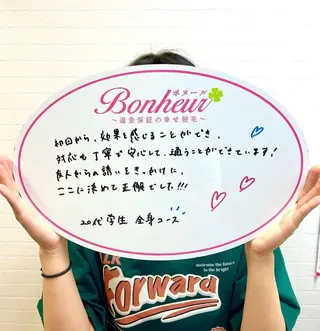 ボヌール
Bonheur
～返金保証の幸せ脱毛～
初回から、効果を感じることができ、
対応も丁寧で安心して、通うことができています!
友人からの誘いをきっかけに、
ここに決めて正解でした!!!
20代 学生 全身コース
Forward
welcome the future
to the bright